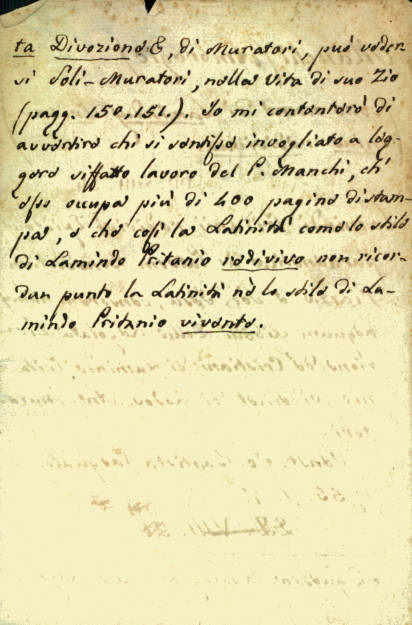 ta Divozione &, di Muratori, può veder-
si Soli-Muratori, nella Vita di suo Zio
(pagg. 150, 151.). Io mi contenterò di
avvertire chi si sentisse invogliato a leg-
gere siffatto lavoro del P. Manchi, ch'
esso occupa più di 400 pagine di stam-
pa, e che così la Latinità come lo stile
di Lamindo Pritanio redivivo non ricor-
dan punto la Latinità nè lo stile di La-
mindo Pritanio vivente.